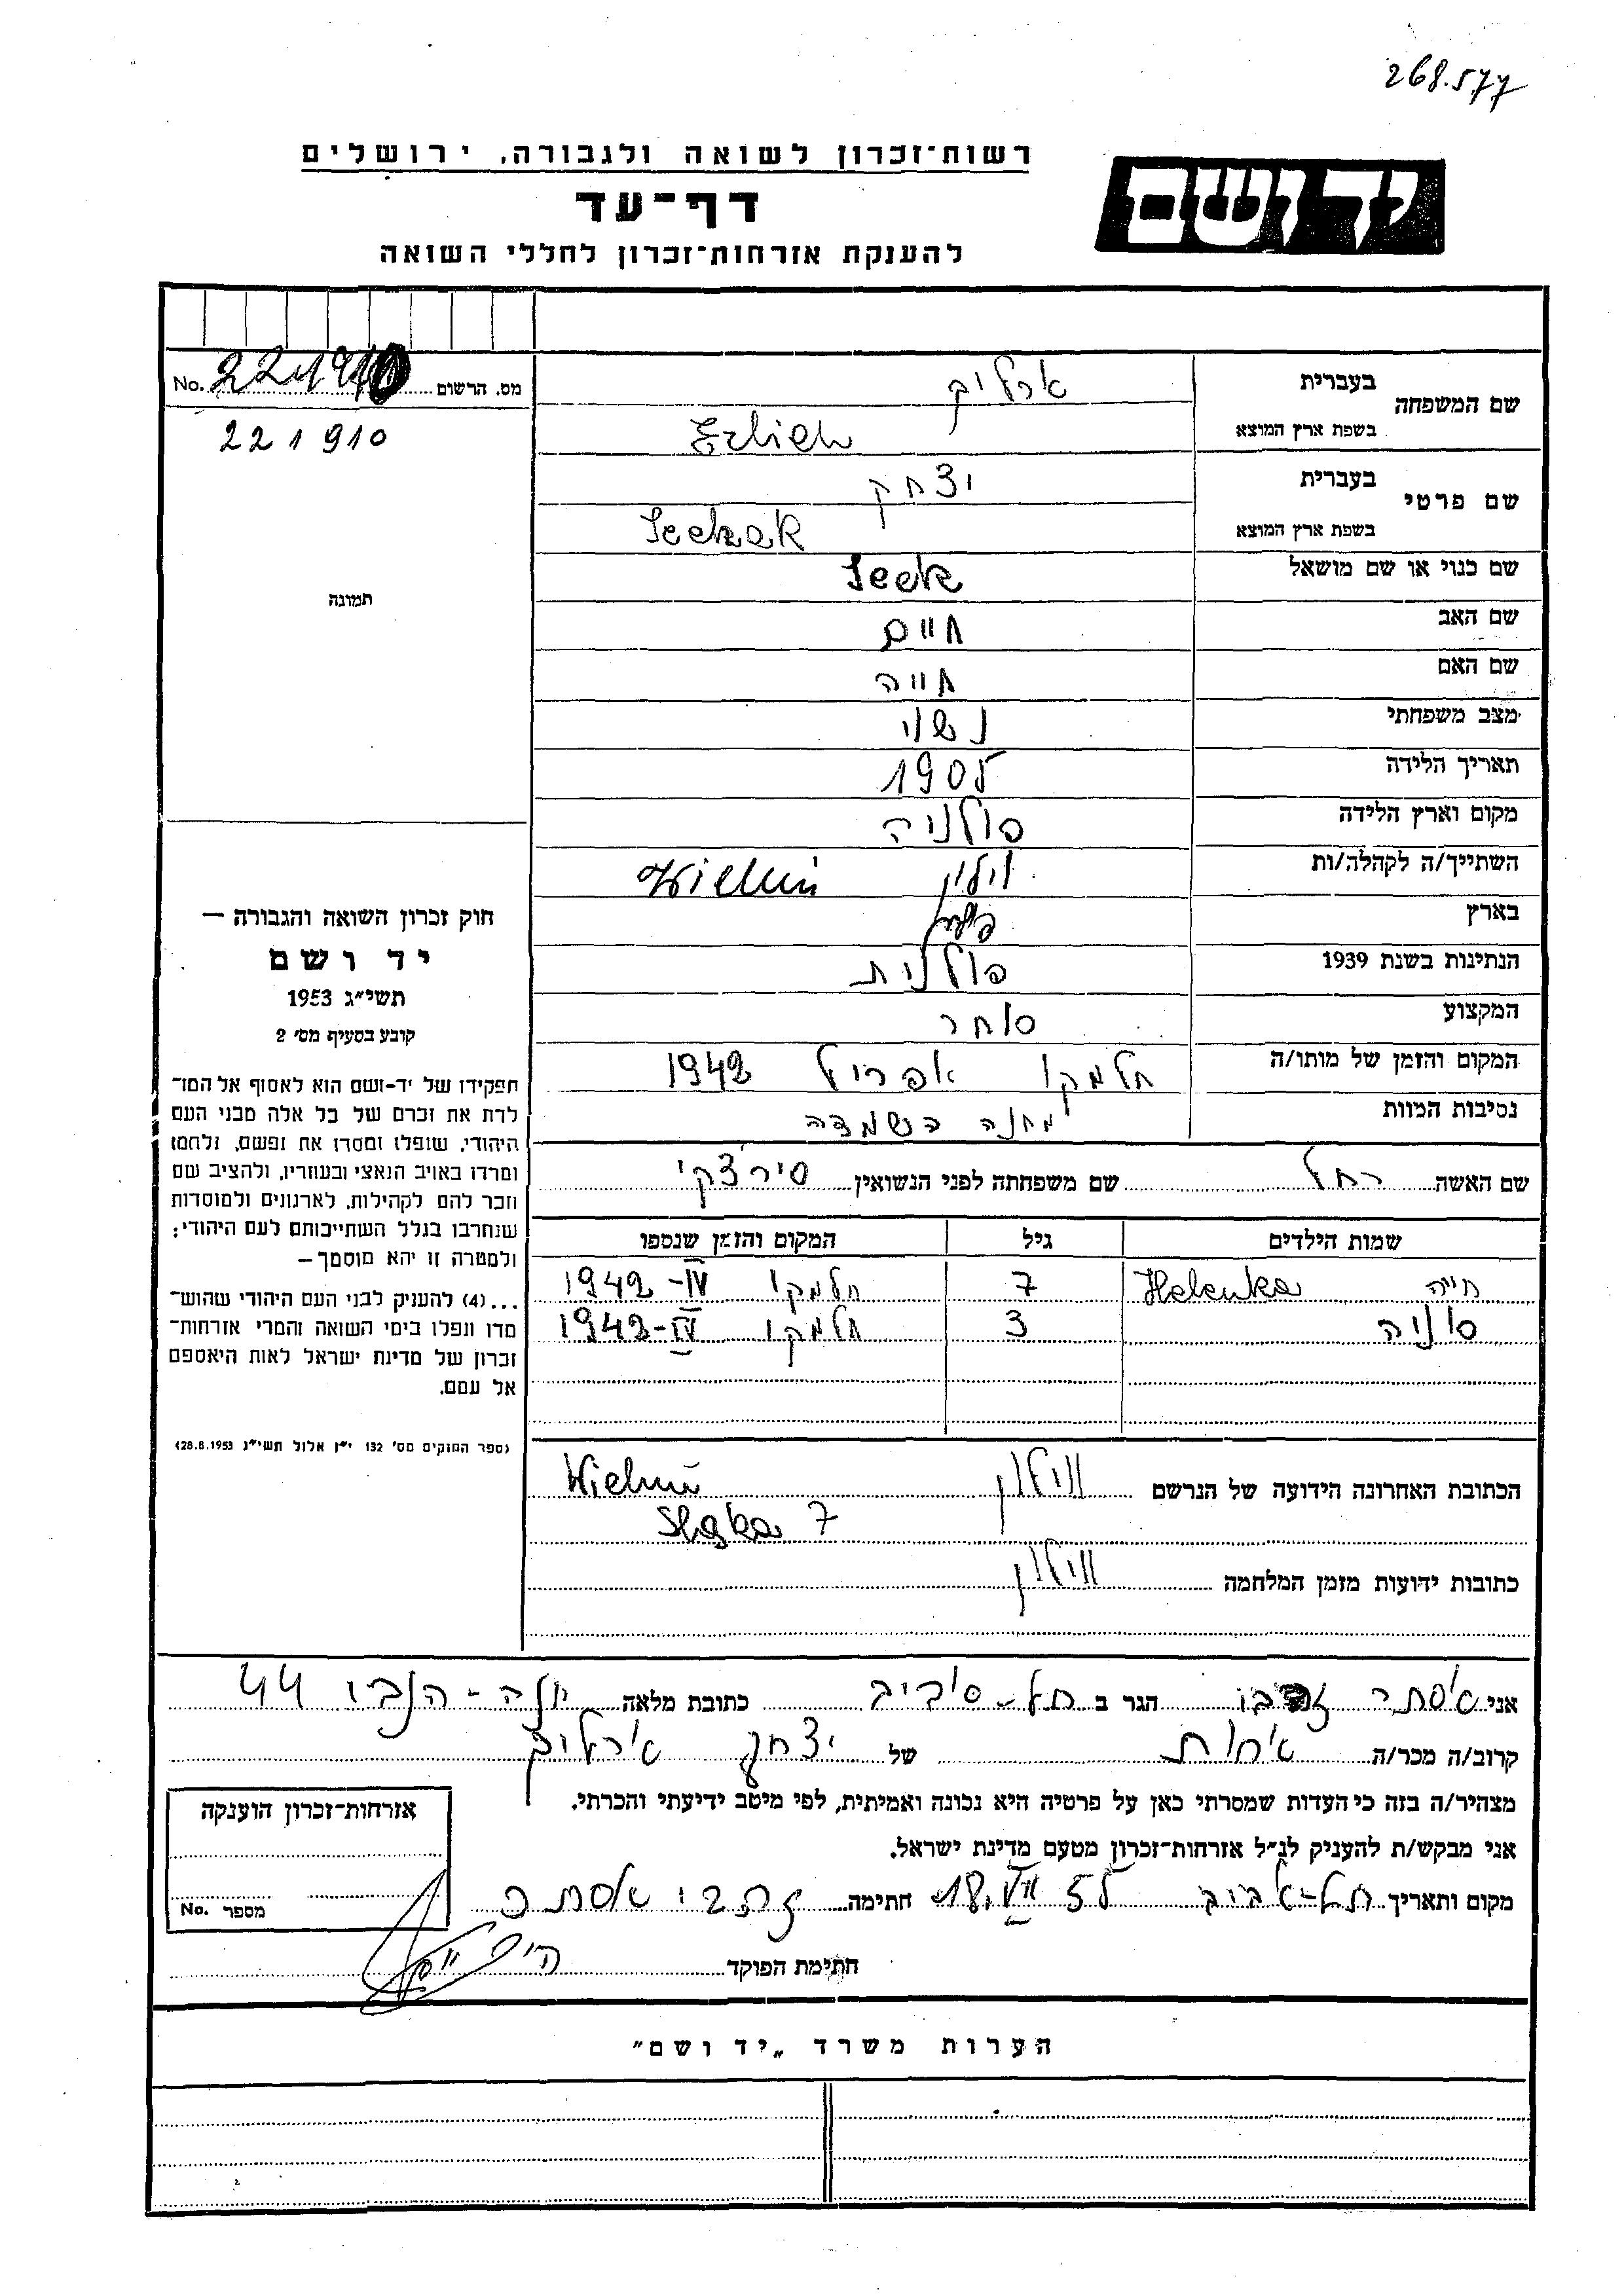 268.577
רשות־זכרון לשואה ולגבורה, ירושלים
יד ושם
דף־עד
להענקת אזרחות־זכרון לחללי השואה
מס. הרשום No.
221910
תמונה
שם המשפחה
בעברית ארליך
בשפת ארץ המוצא Erlich
שם פרטי
בעברית יצחק
בשפת ארץ המוצא Icchak
שם כנוי או שם מושאל Icek
שם האב חיים
שם האם חייה
מצב משפחתי נשוי
תאריך הלידה 1905
מקום וארץ הלידה פולניה
השתייך/ה לקהלה/ות וילון Wieluń
בארץ
הנתינות בשנת 1939 פולנית
המקצוע סוחר
המקום והזמן של מותו/ה חלמנו אפריל 1942
נסיבות המוות מחנה השמדה
שם האשה רחל שם משפחתה לפני הנשואין סירצקי
שמות הילדים גיל המקום והזמן שנספו
חייה Halenka 7 חלמנו 1942-IV
סוניה 3 חלמנו 1942-IV
הכתובת האחרונה הידועה של הנרשם ווילון Wieluń
7
כתובות ידועות מזמן המלחמה ווילון
חוק זכרון השואה והגבורה —
יד ושם
תשי״ג 1953
קובע בסעיף מס׳ 2
תפקידו של יד־ושם הוא לאסוף אל המו־
לדת את זכרם של כל אלה מבני העם
היהודי, שנפלו ומסרו את נפשם, נלחמו
ומרדו באויב הנאצי ובעוזריו, ולהציב שם
וזכר להם לקהילות, לארגונים ולמוסדות
שנחרבו בגלל השתייכותם לעם היהודי;
ולמטרה זו יהא מוסמך —
...(4) להעניק לבני העם היהודי שהוש־
מדו ונפלו בימי השואה והמרי אזרחות־
זכרון של מדינת ישראל לאות היאספם
אל עמם.
(ספר החוקים מס׳ 132 י״ז אלול תשי״ג 28.8.1953)
אני אסתר הגר ב תל-אביב כתובת מלאה נוה-הנבו 44
קרוב/ה מכר/ה אחות של יצחק ארליך
מצהיר/ה בזה כי העדות שמסרתי כאן על פרטיה היא נכונה ואמיתית, לפי מיטב ידיעתי והכרתי.
אני מבקש/ת להעניק לנ״ל אזרחות־זכרון מטעם מדינת ישראל.
מקום ותאריך תל-אביב 18.VII 55 חתימה זהבי אסתר
חתימת הפוקד
אזרחות־זכרון הוענקה
מספר No.
הערות משרד „יד ושם״